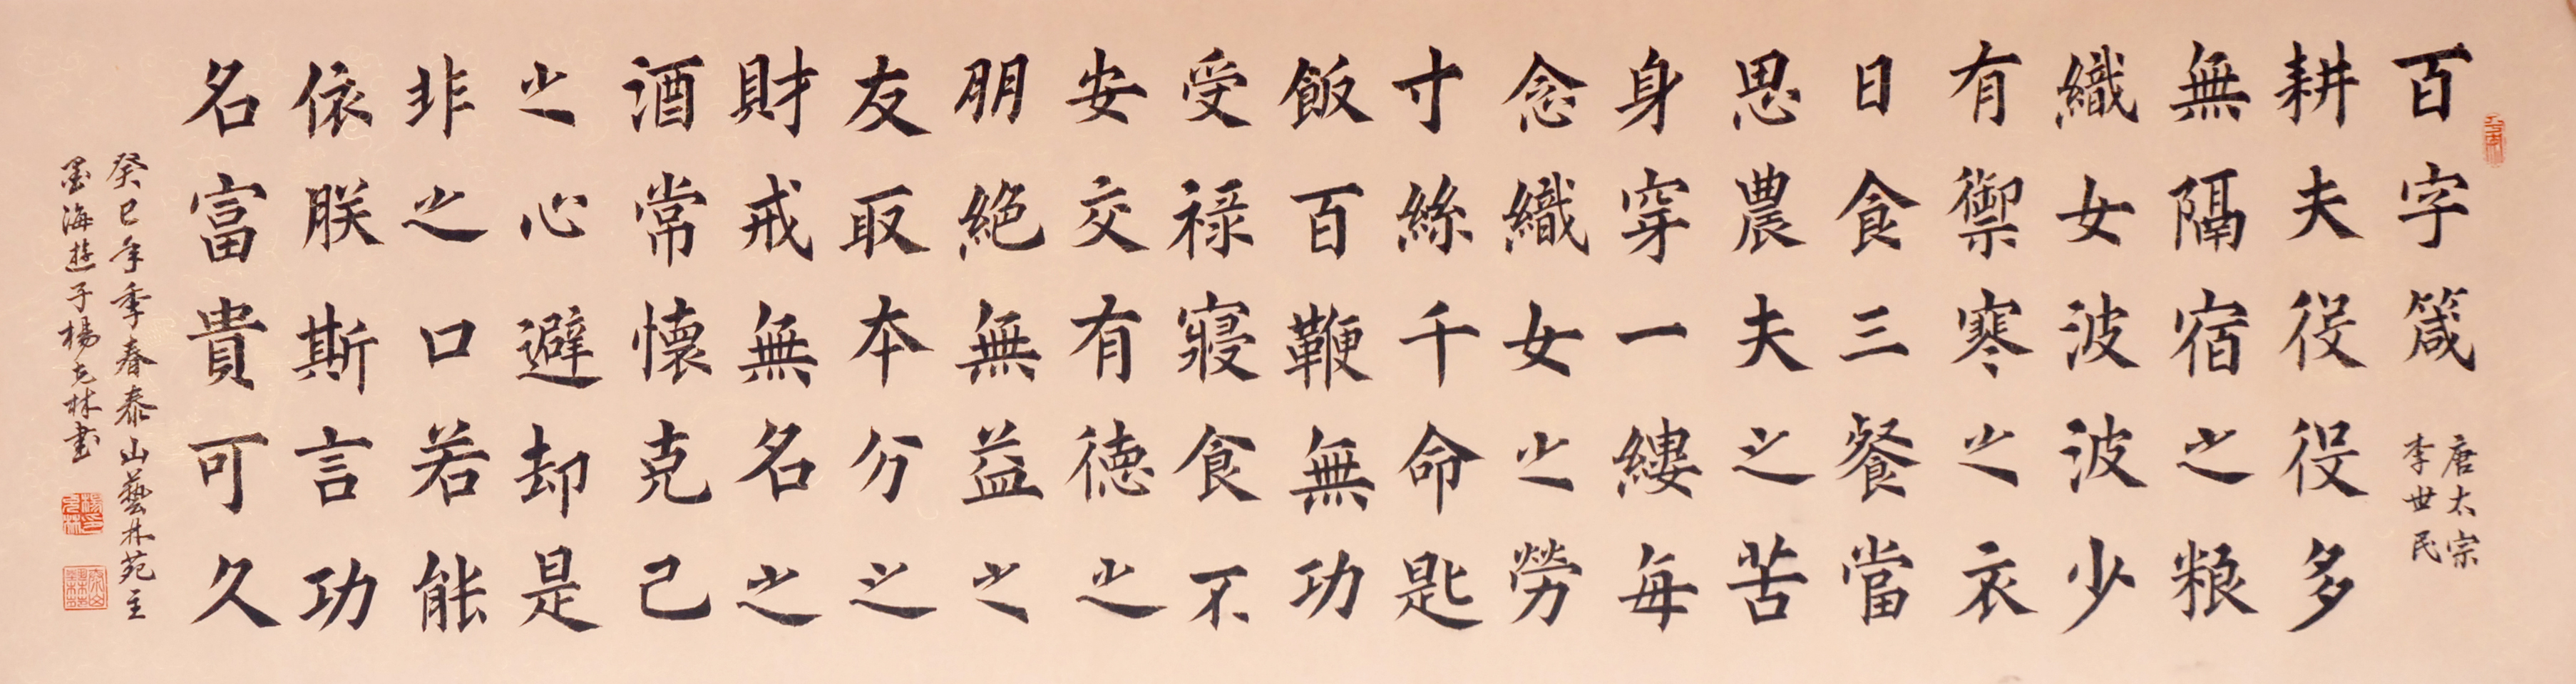 百字箴
唐太宗
李世民
耕夫役役多
無隔宿之粮
織女波波少
有禦寒之衣
日食三餐當
思農夫之苦
身穿一縷每
念織女之勞
寸絲千命匙
飯百鞭無功
受祿寢食不
安交有德之
朋絕無益之
友取本分之
財戒無名之
酒常懷克己
之心避却是
非之口若能
依朕斯言功
名富貴可久
癸巳年季春泰山藝林苑主
墨海遊子楊克林書